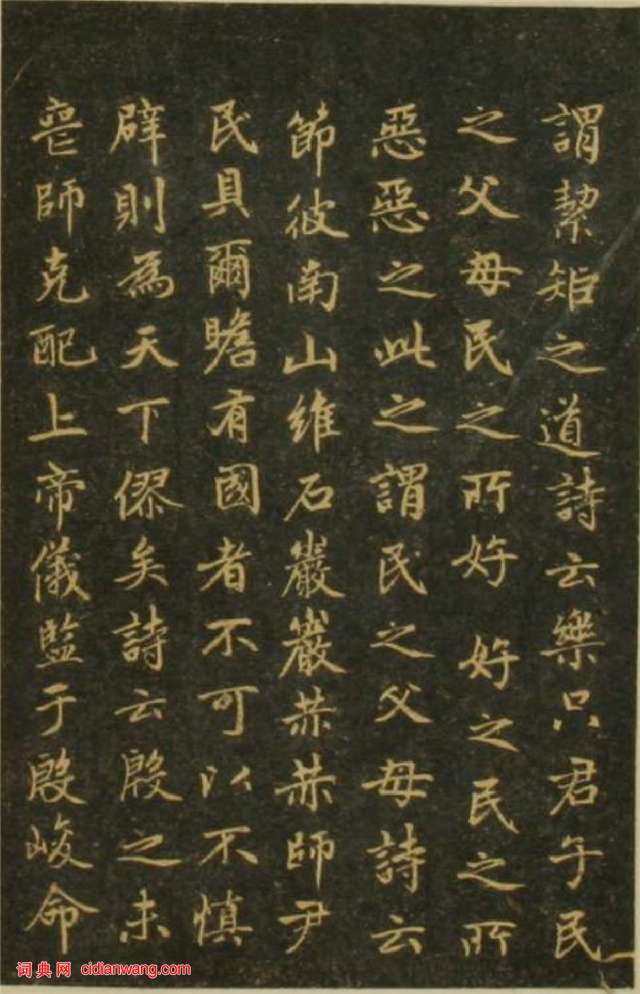 謂絜矩之道詩云樂只君子民
之父母民之所好好之民之所
惡惡之此之謂民之父母詩云
節彼南山維石巖巖赫赫師尹
民具爾瞻有國者不可以不慎
辟則為天下僇矣詩云殷之未
喪師克配上帝儀監于殷峻命
词典网 cidianwang.com